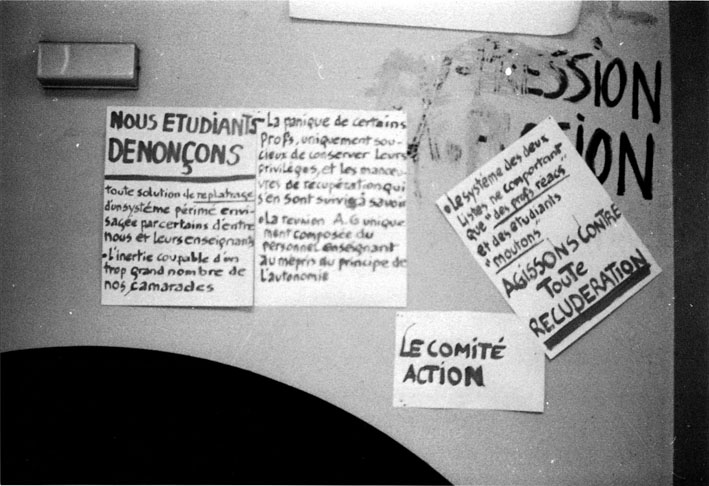 NOUS ETUDIANTS
DENONÇONS
toute solution de replatrage
d'un système périmé envi-
sagée par certains d'entre
nous et leurs enseignants
• L'inertie coupable d'un
trop grand nombre de
nos camarades
- La panique de certains
Profs, uniquement sou-
cieux de conserver leurs
privilèges, et les manoeu-
vres de recupération qui
s'en sont suivies à savoir
• La reunion A.G unique
ment composée du
personnel enseignant
au mépris du principe de
l'autonomie
• Le système des deux
Listes ne comportant
que "des profs réacs"
et des étudiants
"moutons"
AGISSONS CONTRE
TOUTE
RECUDERATION
LE COMITÉ
ACTION
RESSION
ION